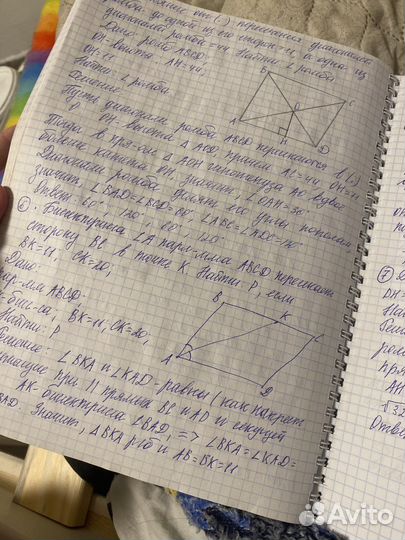 пересечения диагоналей
ромба до одной из его сторон 11, а одна из
диагоналей ромба = 44. Найти ∠ ромба
Дано: ромб ABCD.
OH-высота AC=44;
OH=11
Найти: ∠ ромба.
Решение:
Пусть диагонали ромба ABCD пересекаются в (·)
O, OH-высота ∆ AOD, причём AC=44, OH=11
Тогда в прям-ом ∆ AOH гипотенуза AO вдвое
больше катета OH, значит, ∠OAH=30°.
Диагонали ромба делят его углы пополам
значит, ∠BAD=∠BCD=60°, ∠ABC=∠ADC=120°
Ответ: 60°, 120°, 60°, 120°
B
C
O
A
H
D
⑥. Биссектриса ∠A парал-мма ABCD пересекает
сторону BC в точке K. Найти P, если
BK=11, CK=20;
Дано:
пар-мм ABCD.
-бис-са; BK=11; CK=20;
Найти: P
Решение:
∠BKA и ∠KAD-равны (как накрест
лежащие при || прямых BC и AD и секущей
AK-биссектриса ∠BAD, => ∠BKA=∠KAD=
BAD. Значит, ∆BKA р/б и AB=BK=11
B
K
C
A
D
⑦
DH=
Най
Реш
ром
AH
√32
Отве
Avito